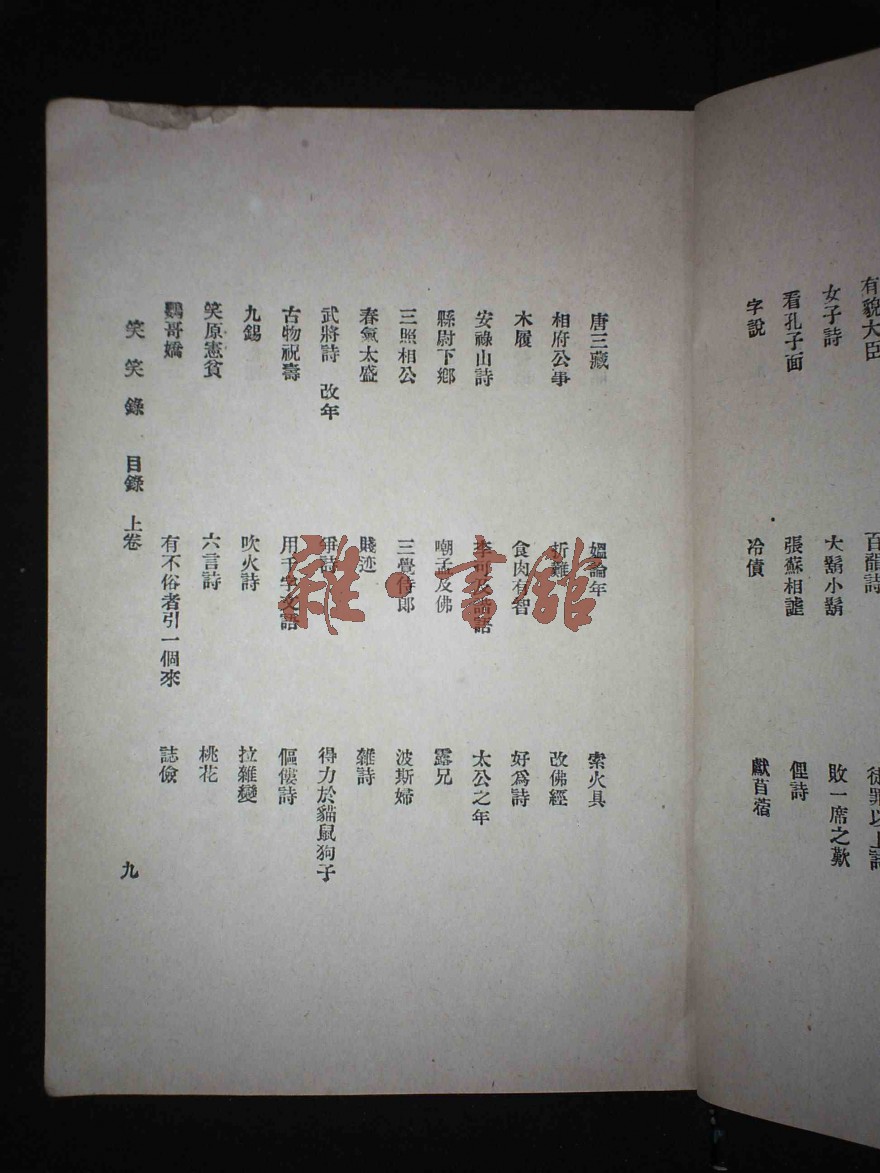 有貌大臣
百韻詩
徒罪以上
女子詩
大鬍小鬍
敗一席之歡
看孔子面
張蘇相謔
俚詩
字說
冷債
獻苜蓿
唐三藏
媼論年
索火具
相府公事
折難
改佛經
木履
食肉有智
好為詩
安祿山詩
李可及論語
太公之年
縣尉下鄉
嘲孟及佛
露兄
三照相公
三覺侍郎
波斯婦
春氣太盛
賤迹
雜詩
武將詩 改年
爭詩
得力於貓鼠狗子
古物祝壽
用千字文語
傴僂詩
九錫
吹火詩
拉雜變
笑原憲貧
六言詩
桃花
鸚哥嬌
有不俗者引一個來
誌儉
笑笑錄 目錄 上卷
九
雜·書館